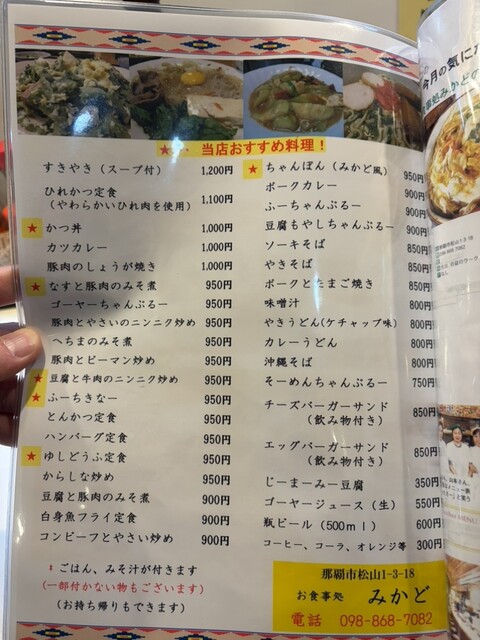 ★・・当店おすすめ料理！
すきやき（スープ付） 1,200円
ひれかつ定食 1,100円
（やわらかいひれ肉を使用）
★ かつ丼 1,000円
カツカレー 1,000円
豚肉のしょうが焼き 1,000円
★ なすと豚肉のみそ煮 950円
ゴーヤーちゃんぷるー 950円
豚肉とやさいのニンニク炒め 950円
へちまのみそ煮 950円
豚肉とピーマン炒め 950円
★ 豆腐と牛肉のニンニク炒め 950円
★ ふーちきなー 950円
とんかつ定食 950円
ハンバーグ定食 950円
★ ゆしどうふ定食 950円
からしな炒め 950円
豆腐と豚肉のみそ煮 900円
白身魚フライ定食 900円
コンビーフとやさい炒め 900円
＊ごはん、みそ汁が付きます
（一部付かない物もございます）
（お持ち帰りもできます）
★ ちゃんぽん（みかど風） 950円
ポークカレー 900円
ふーちゃんぷるー 900円
豆腐もやしちゃんぷるー 900円
ソーキそば 850円
やきそば 850円
ポークとたまご焼き 850円
味噌汁 800円
やきうどん(ケチャップ味) 800円
カレーうどん 800円
沖縄そば 800円
そーめんちゃんぷるー 750円
チーズバーガーサンド 850円
（飲み物付き）
エッグバーガーサンド 850円
（飲み物付き）
じーまーみー豆腐 350円
ゴーヤージュース（生） 550円
瓶ビール（500ml） 600円
コーヒー、コーラ、オレンジ等 300円
那覇市松山1-3-18
お食事処 みかど
電話 098-868-7082
今月の気に
食事処みかどの